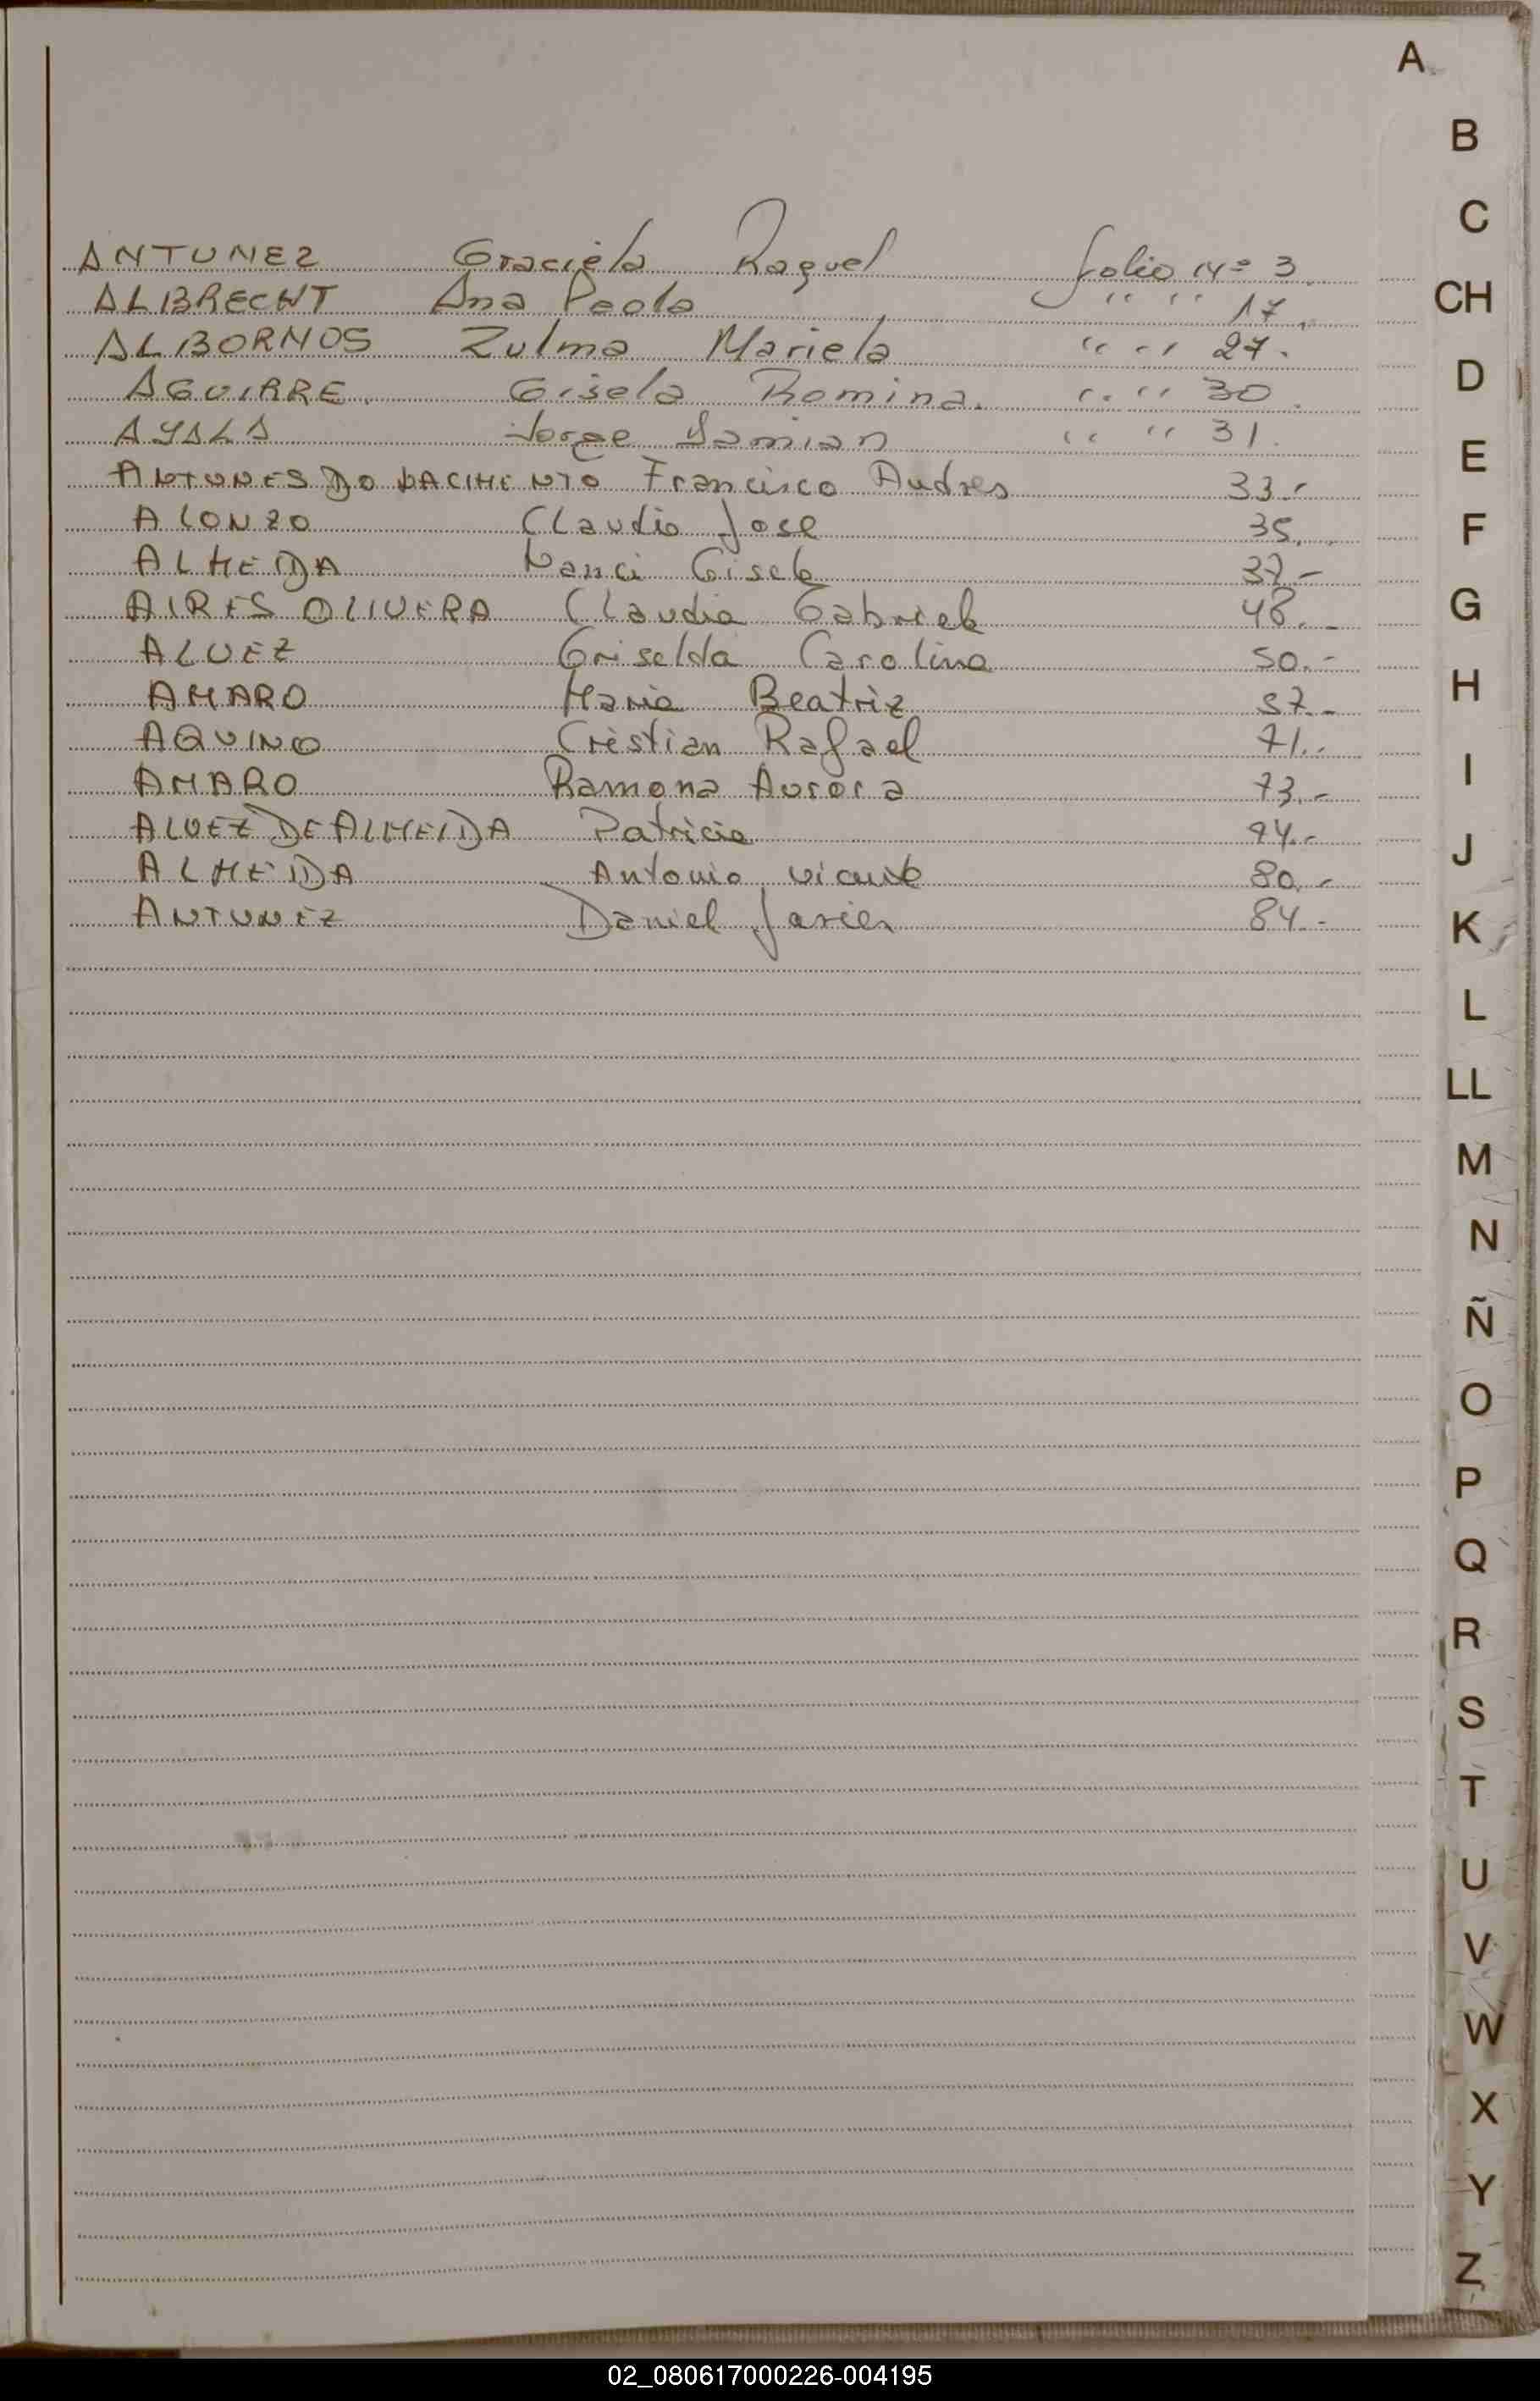 A
ANTUNEZ Graciela Raquel folio Nº 3
ALBRECHT Ana Paola " " 17.
ALBORNOS Zulma Mariela " " 27.
AGUIRRE. Gisela Romina. " " 30.
AYALA Jorge Damian " " 31.
ANTUNES DO NACIMENTO Francisco Andres 33.-
ALONZO Claudio Jose 35.-
ALMEIDA Nanci Gisela 37.-
AIRES OLIVERA Claudia Gabriela 48.-
ALVEZ Griselda Carolina 50.-
AMARO Maria Beatriz 57.-
AQUINO Cristian Rafael 71.-
AMARO Ramona Aurora 73.-
ALVEZ DE ALMEIDA Patricia 74.-
ALMEIDA Antonio Vicente 80.-
ANTUNEZ Daniel Javier 84.-
B
C
CH
D
E
F
G
H
I
J
K
L
LL
M
N
Ñ
O
P
Q
R
S
T
U
V
W
X
Y
Z
02_080617000226-004195